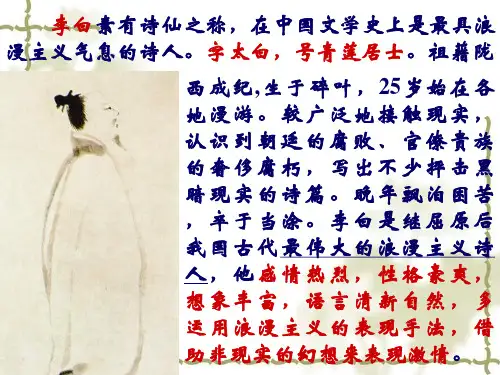 李白素有诗仙之称，在中国文学史上是最具浪
漫主义气息的诗人。字太白，号青莲居士。祖籍陇
西成纪,生于碎叶，25岁始在各
地漫游。较广泛地接触现实，
认识到朝廷的腐败、官僚贵族
的奢侈腐朽，写出不少抨击黑
暗现实的诗篇。晚年飘泊困苦
，卒于当涂。李白是继屈原后
我国古代最伟大的浪漫主义诗
人，他感情热烈，性格豪爽，
想象丰富，语言清新自然，多
运用浪漫主义的表现手法，借
助非现实的幻想来表现激情。